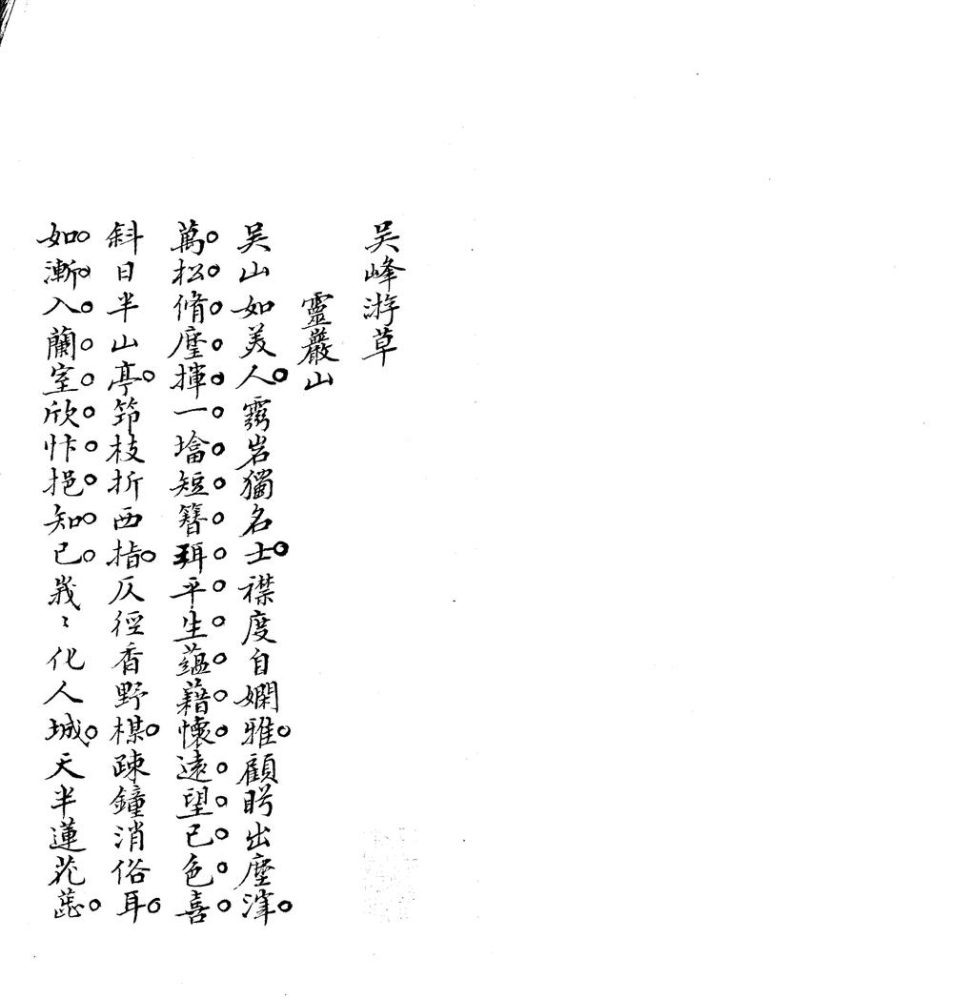 吴峰游草
靈巖山
吴山如美人靈岩獨名士襟度自嫻雅顧盼出塵滓
萬松脩麈揮一墖短簪珥平生蘊藉懷遠望已色喜
斜日半山亭笻枝折西指仄徑香野楳疎鐘消俗耳
如漸入蘭室欣忭挹知已峩〻化人城天半蓮花蕋